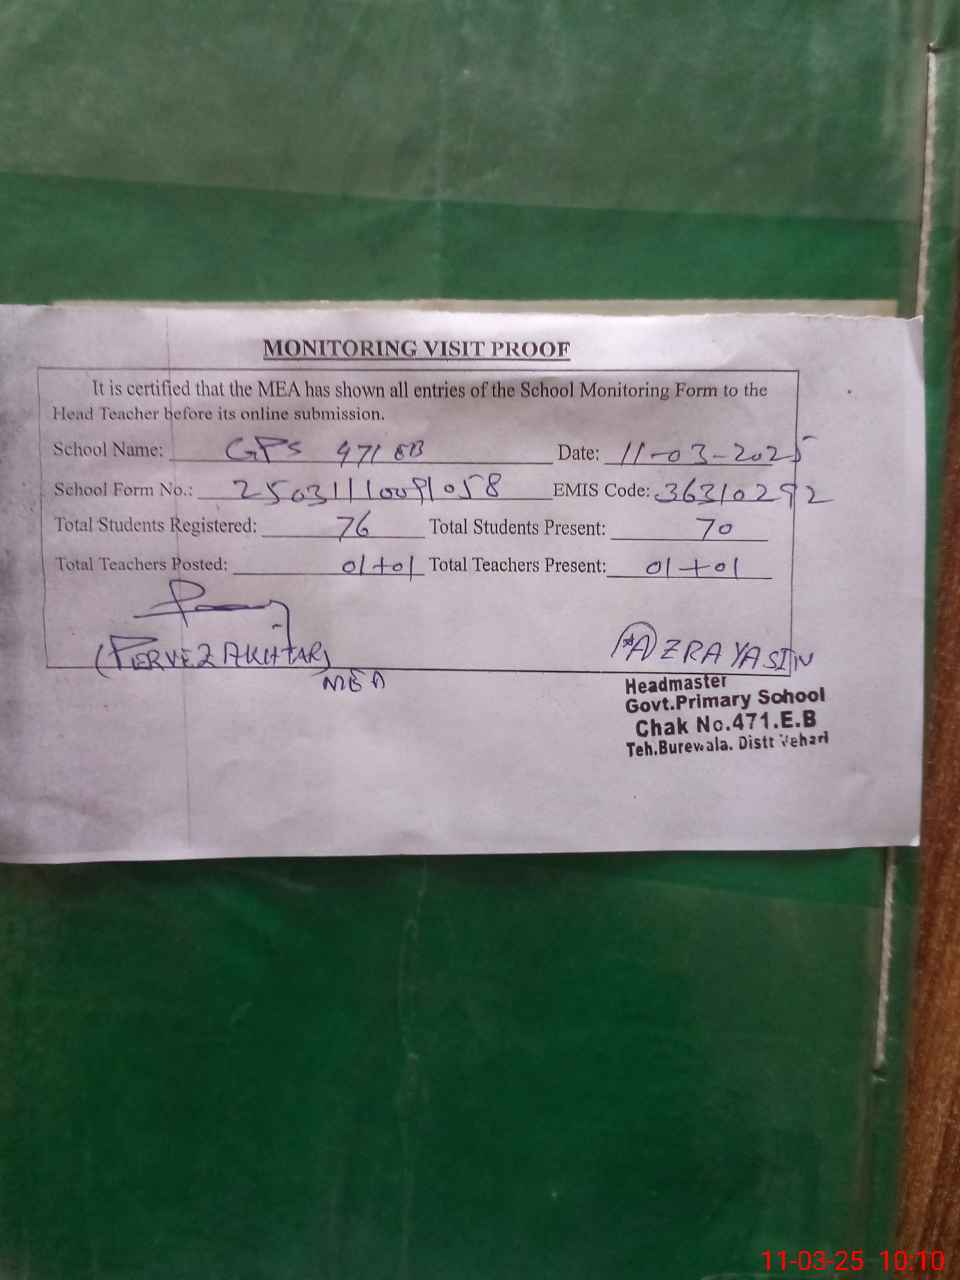 MONITORING VISIT PROOF
It is certified that the MEA has shown all entries of the School Monitoring Form to the
Head Teacher before its online submission.
School Name: GPS 471 EB Date: 11-03-2025
School Form No.: EMIS Code: 36310292
Total Students Registered: 76 Total Students Present: 70
Total Teachers Posted: 01+01 Total Teachers Present: 01+01
(PERVEZ AKHTAR)
MEA
AZRA YASIN
Headmaster
Govt.Primary School
Chak No.471.E.B
Teh.Burewala. Distt Vehari
11-03-25 10:10